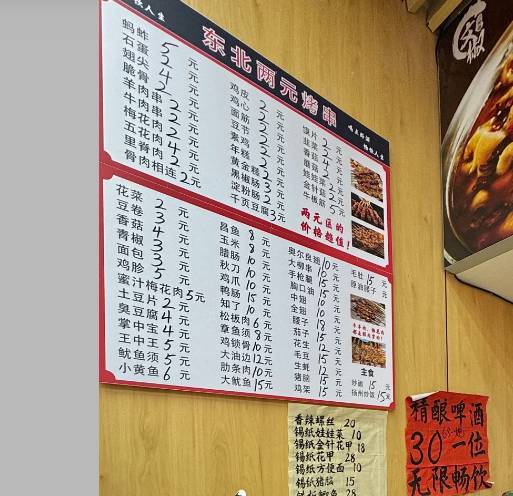 东北两元烤串
蚂蚱 5元
石蛋 2元
翅尖 4元
脆骨 2元
羊肉串 2元
牛肉串 2元
梅花肉 2元
五花肉 4元
里脊肉 2元
骨肉相连 2元
鸡皮 2元
鸡心 2元
面筋 2元
豆节 2元
素鸡 2元
年糕 2元
黄金糕 3元
黑椒肠 2元
淀粉肠 2元
千页豆腐 3元
馍片 2元
韭菜 2元
香菇 4元
蘑菇 2元
娃娃菜 2元
金针菇 2元
牛板筋 5元
两元区的
价格超值!
花菜 2元
豆卷 3元
香菇 4元
青椒 3元
面包 3元
鸡胗 5元
蜜汁梅花肉 5元
土豆片 2元
臭豆腐 4元
掌中宝 4元
王中王 5元
鱿鱼须 5元
小黄鱼 6元
昌鱼 8元
玉米 8元
腊肠 10元
秋刀 10元
鸡爪 10元
鸭肠 15元
知了 10元
松板肉 6元
章鱼须 8元
鸡锁骨 10元
大油边 12元
肋条肉 10元
大鱿鱼 15元
奥尔良翅 10元
大柳串 10元
手枪腿 15元
胸口油 15元
中翅 10元
全翅 10元
腰子 18元
茄子 15元
花生 12元
毛豆 15元
生蚝 12元
猪脑 15元
鸡架 15元
毛肚 15元
原油腰子 元
主食
炒面 15元
扬州炒饭 15元
香辣螺丝 20
锡纸娃娃菜 10
锡纸金针花甲 18
锡纸花甲 28
锡纸方便面 10
锡纸猪脑 15
28
精酿啤酒
30一位
无限畅饮